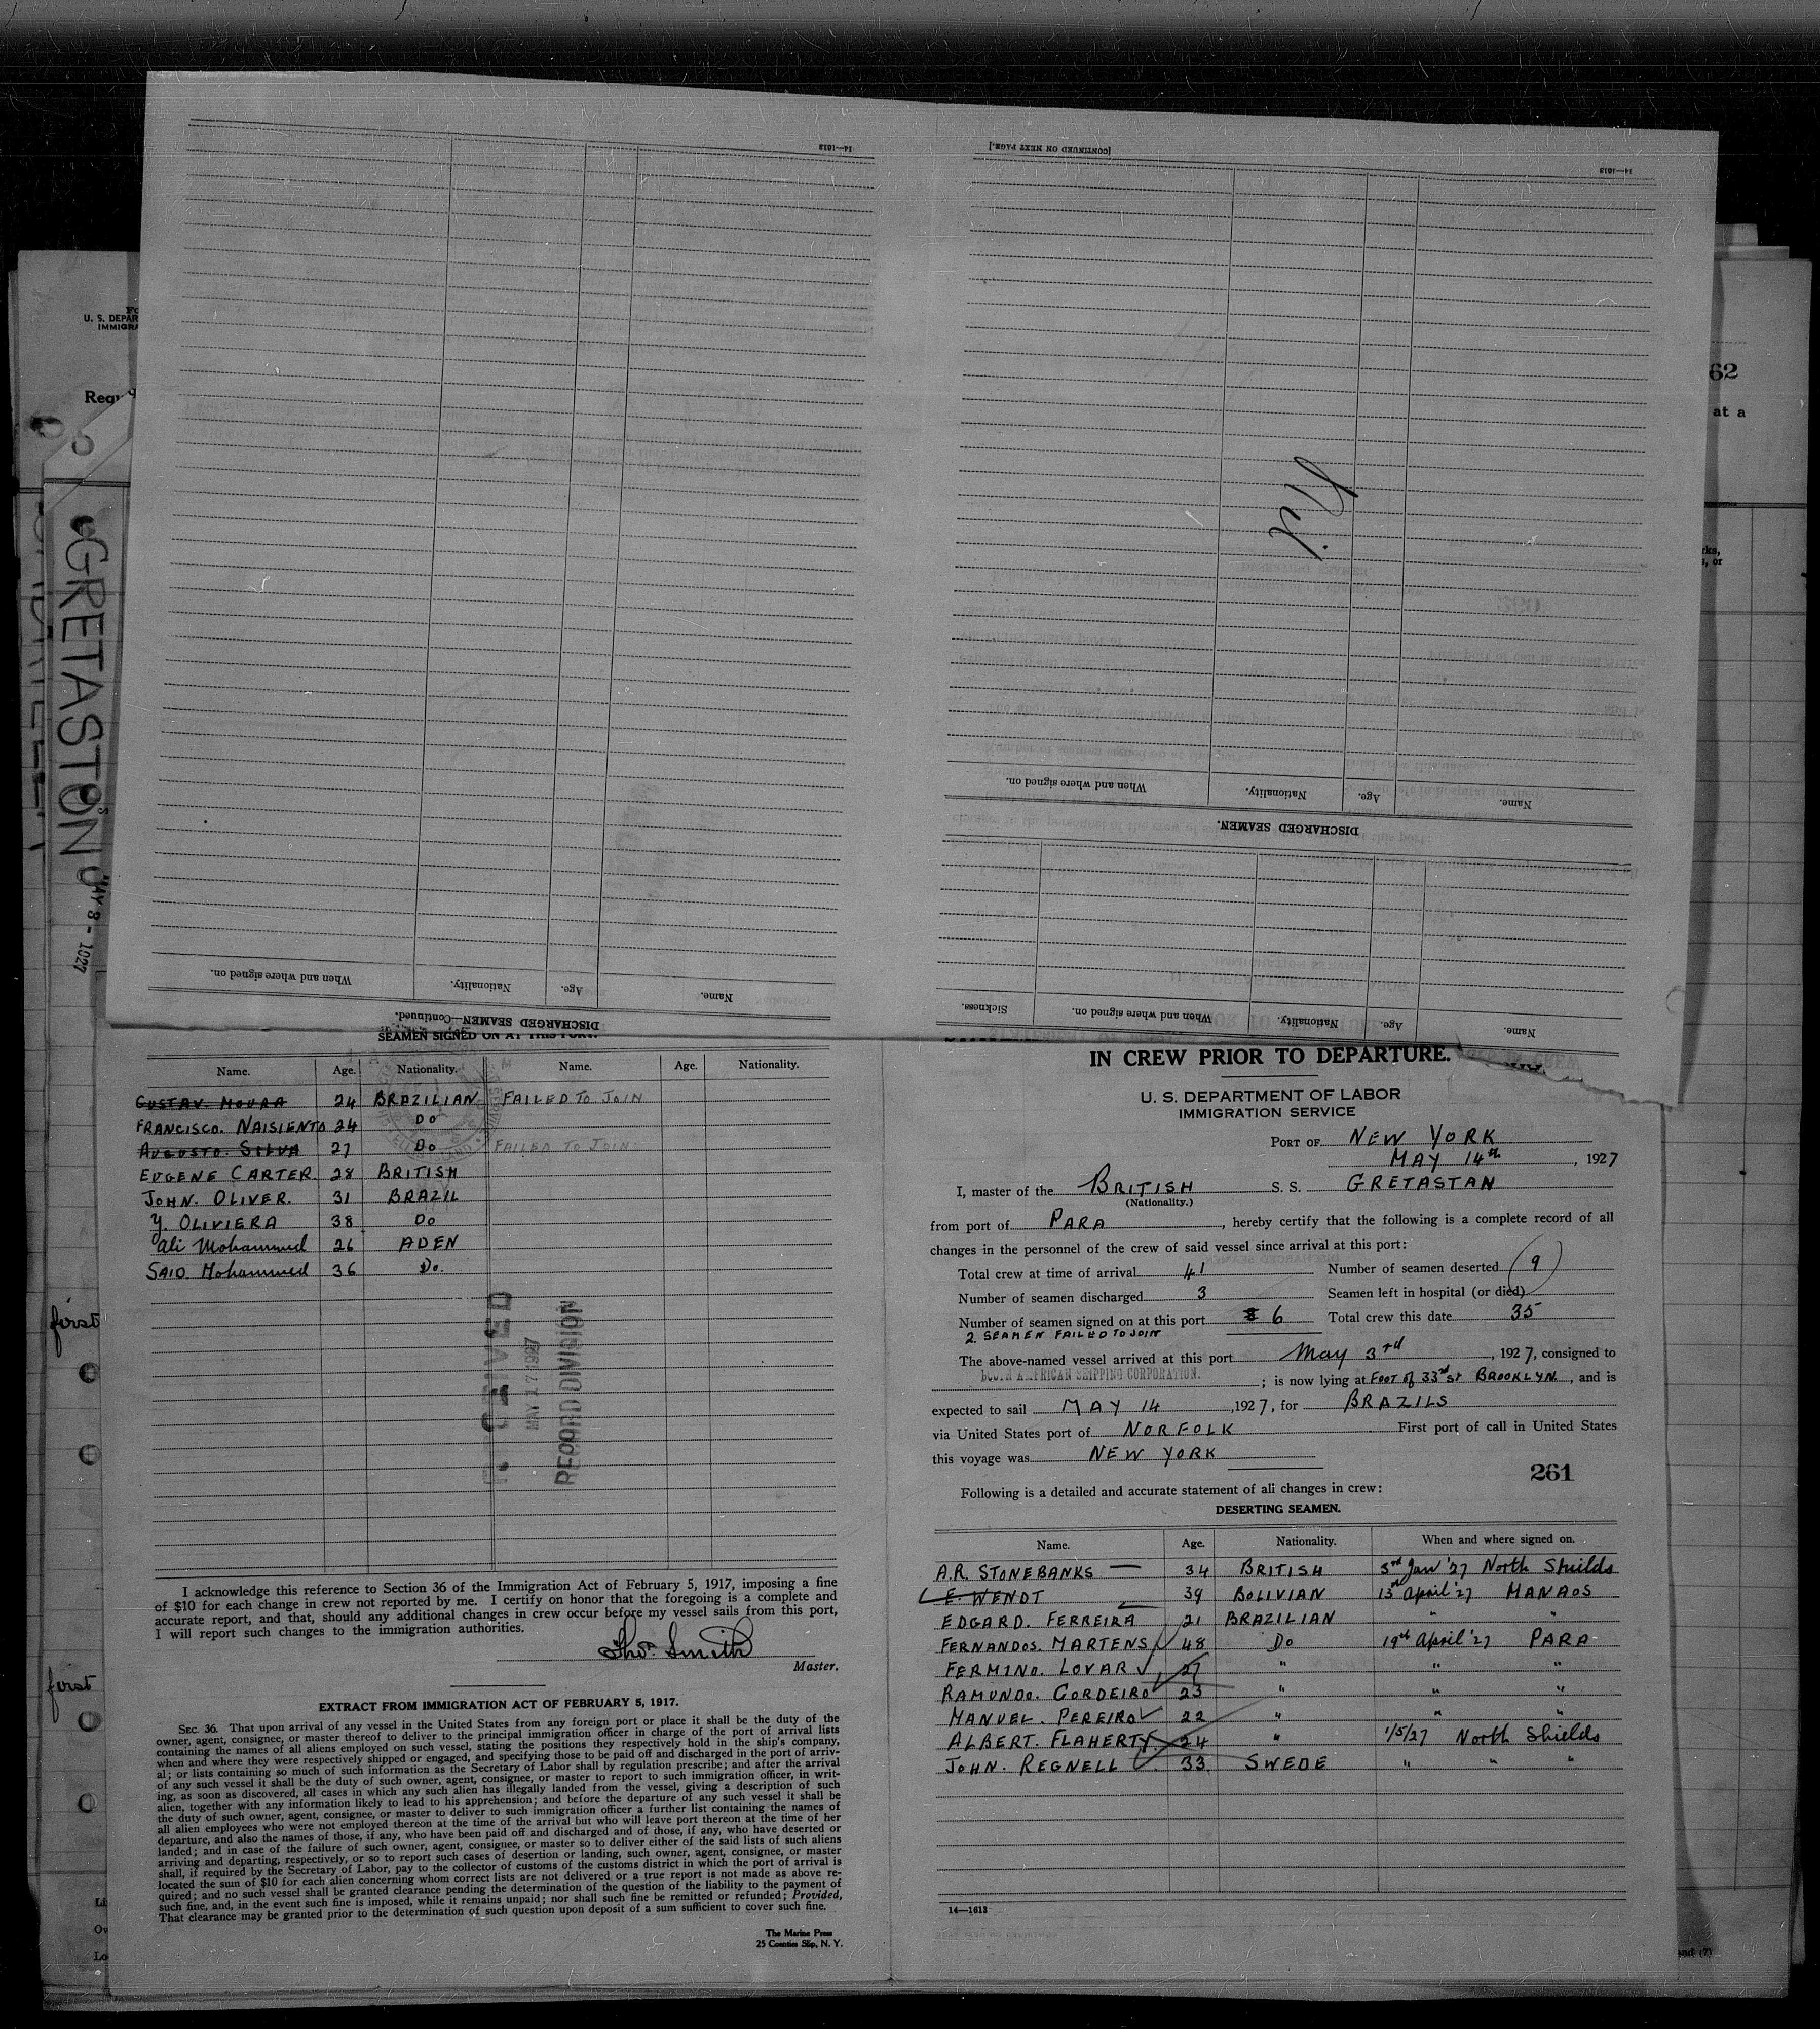 14—1613
[CONTINUED ON NEXT PAGE.]
14—1613
U. S. DEPAR
IMMIGRA
62
at a
Requ
GRETASTON
MAY 3 - 1927
Nil
When and where signed on.
Nationality.
Age.
Name.
DISCHARGED SEAMEN.
When and where signed on.
Nationality.
Age.
Name.
DISCHARGED SEAMEN—Continued.
Sickness.
When and where signed on.
Nationality.
Age.
Name.
SEAMEN SIGNED ON AT THIS PORT.
Name. Age. Nationality. Name. Age. Nationality.
GUSTAV. MOURA 24 BRAZILIAN FAILED TO JOIN
FRANCISCO. NAISIENTO 24 DO
AUGUSTO. SILVA 27 DO FAILED TO JOIN
EUGENE CARTER. 28 BRITISH
JOHN. OLIVER. 31 BRAZIL
Y. OLIVIERA 38 DO
Ali Mohammed 26 ADEN
SAID Mohammed 36 Do.
MAY 17 1927
RECORD DIVISION
first
first
I acknowledge this reference to Section 36 of the Immigration Act of February 5, 1917, imposing a fine
of $10 for each change in crew not reported by me. I certify on honor that the foregoing is a complete and
accurate report, and that, should any additional changes in crew occur before my vessel sails from this port,
I will report such changes to the immigration authorities.
Thos. Smith
Master.
EXTRACT FROM IMMIGRATION ACT OF FEBRUARY 5, 1917.
SEC. 36. That upon arrival of any vessel in the United States from any foreign port or place it shall be the duty of the
owner, agent, consignee, or master thereof to deliver to the principal immigration officer in charge of the port of arrival lists
containing the names of all aliens employed on such vessel, stating the positions they respectively hold in the ship's company,
when and where they were respectively shipped or engaged, and specifying those to be paid off and discharged in the port of arriv-
al; or lists containing so much of such information as the Secretary of Labor shall by regulation prescribe; and after the arrival
of any such vessel it shall be the duty of such owner, agent, consignee, or master to report to such immigration officer, in writ-
ing, as soon as discovered, all cases in which any such alien has illegally landed from the vessel, giving a description of such
alien, together with any information likely to lead to his apprehension; and before the departure of any such vessel it shall be
the duty of such owner, agent, consignee, or master to deliver to such immigration officer a further list containing the names of
all alien employees who were not employed thereon at the time of the arrival but who will leave port thereon at the time of her
departure, and also the names of those, if any, who have been paid off and discharged and of those, if any, who have deserted or
landed; and in case of the failure of such owner, agent, consignee, or master so to deliver either of the said lists of such aliens
arriving and departing, respectively, or so to report such cases of desertion or landing, such owner, agent, consignee, or master
shall, if required by the Secretary of Labor, pay to the collector of customs of the customs district in which the port of arrival is
located the sum of $10 for each alien concerning whom correct lists are not delivered or a true report is not made as above re-
quired; and no such vessel shall be granted clearance pending the determination of the question of the liability to the payment of
such fine, and, in the event such fine is imposed, while it remains unpaid; nor shall such fine be remitted or refunded; Provided,
That clearance may be granted prior to the determination of such question upon deposit of a sum sufficient to cover such fine.
The Marine Press
25 Coenties Slip, N. Y.
IN CREW PRIOR TO DEPARTURE.
U. S. DEPARTMENT OF LABOR
IMMIGRATION SERVICE
PORT OF NEW YORK
MAY 14th, 1927
I, master of the BRITISH S. S. GRETASTAN
(Nationality.)
from port of PARA, hereby certify that the following is a complete record of all
changes in the personnel of the crew of said vessel since arrival at this port:
Total crew at time of arrival 41 Number of seamen deserted 9
Number of seamen discharged 3 Seamen left in hospital (or died)
Number of seamen signed on at this port 8 6 Total crew this date 35
2 SEAMEN FAILED TO JOIN
The above-named vessel arrived at this port May 3rd, 1927, consigned to
SOUTH AMERICAN SHIPPING CORPORATION. ; is now lying at FOOT of 33rd St BROOKLYN, and is
expected to sail MAY 14, 1927, for BRAZILS
via United States port of NORFOLK First port of call in United States
this voyage was NEW YORK
261
Following is a detailed and accurate statement of all changes in crew:
DESERTING SEAMEN.
Name. Age. Nationality. When and where signed on.
A.R. STONEBANKS — 34 BRITISH 3rd Jan '27 North Shields
E. WENDT 39 BOLIVIAN 13th April '27 MANAOS
EDGARD. FERREIRA 21 BRAZILIAN " "
FERNANDOS. MARTENS 48 Do 19th April '27 PARA
FERMINO. LOVAR 27 " " "
RAMUNDO. CORDEIRO 23 " " "
MANUEL. PEREIRO 22 " " "
ALBERT. FLAHERTY 24 " 1/5/27 North Shields
JOHN. REGNELL 33 SWEDE " " "
14—1613